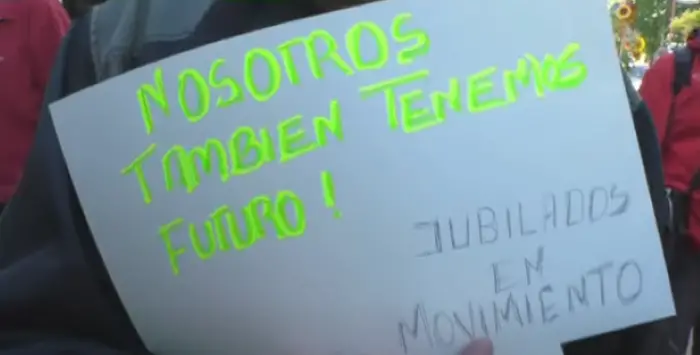 NOSOTROS
TAMBIEN TENEMOS
FUTURO!
JUBILADOS
EN
MOVIMIENTO